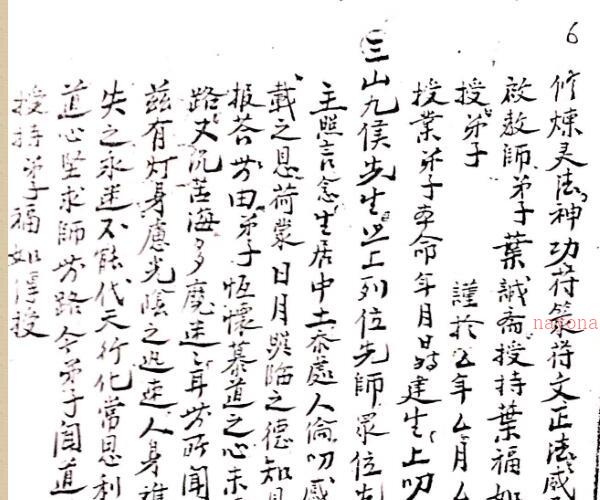 6
修煉灵法神功符箓符文正法感
啟教師弟子葉誠斋授持葉福如
授弟子 謹於厶年厶月厶
授業弟子本命年月日時建生上叨
三山九侯先生 上列位先師眾位先
主照言念生居中土忝處人倫叨感
載之恩荷蒙日月照臨之德知
报答無由弟子恆懷慕道之心未
路丈沉苦海多魔迷之耳無所聞
兹有灯身慮光陰之迅速人身
失之永迷不能代天行化常思利
道心堅求師無路今弟子闻道
授持弟子福如傳授
nagona